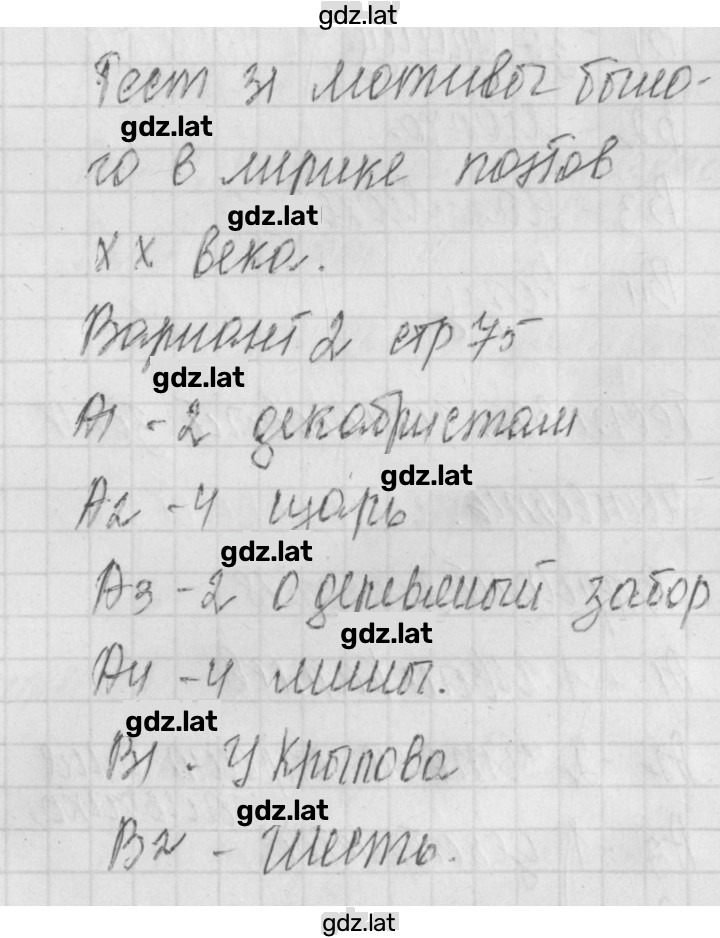 gdz.lat
Тест 31 мотивы было-
gdz.lat
го в лирике поэтов
gdz.lat
XX века.
Вариант 2 стр 75
gdz.lat
А1 - 2 декабристам
gdz.lat
А2 - 4 царь
gdz.lat
А3 - 2 О деревяный забор
gdz.lat
А4 - 4 мины.
gdz.lat
В1 - У Крылова
gdz.lat
В2 - Шесть.
gdz.lat